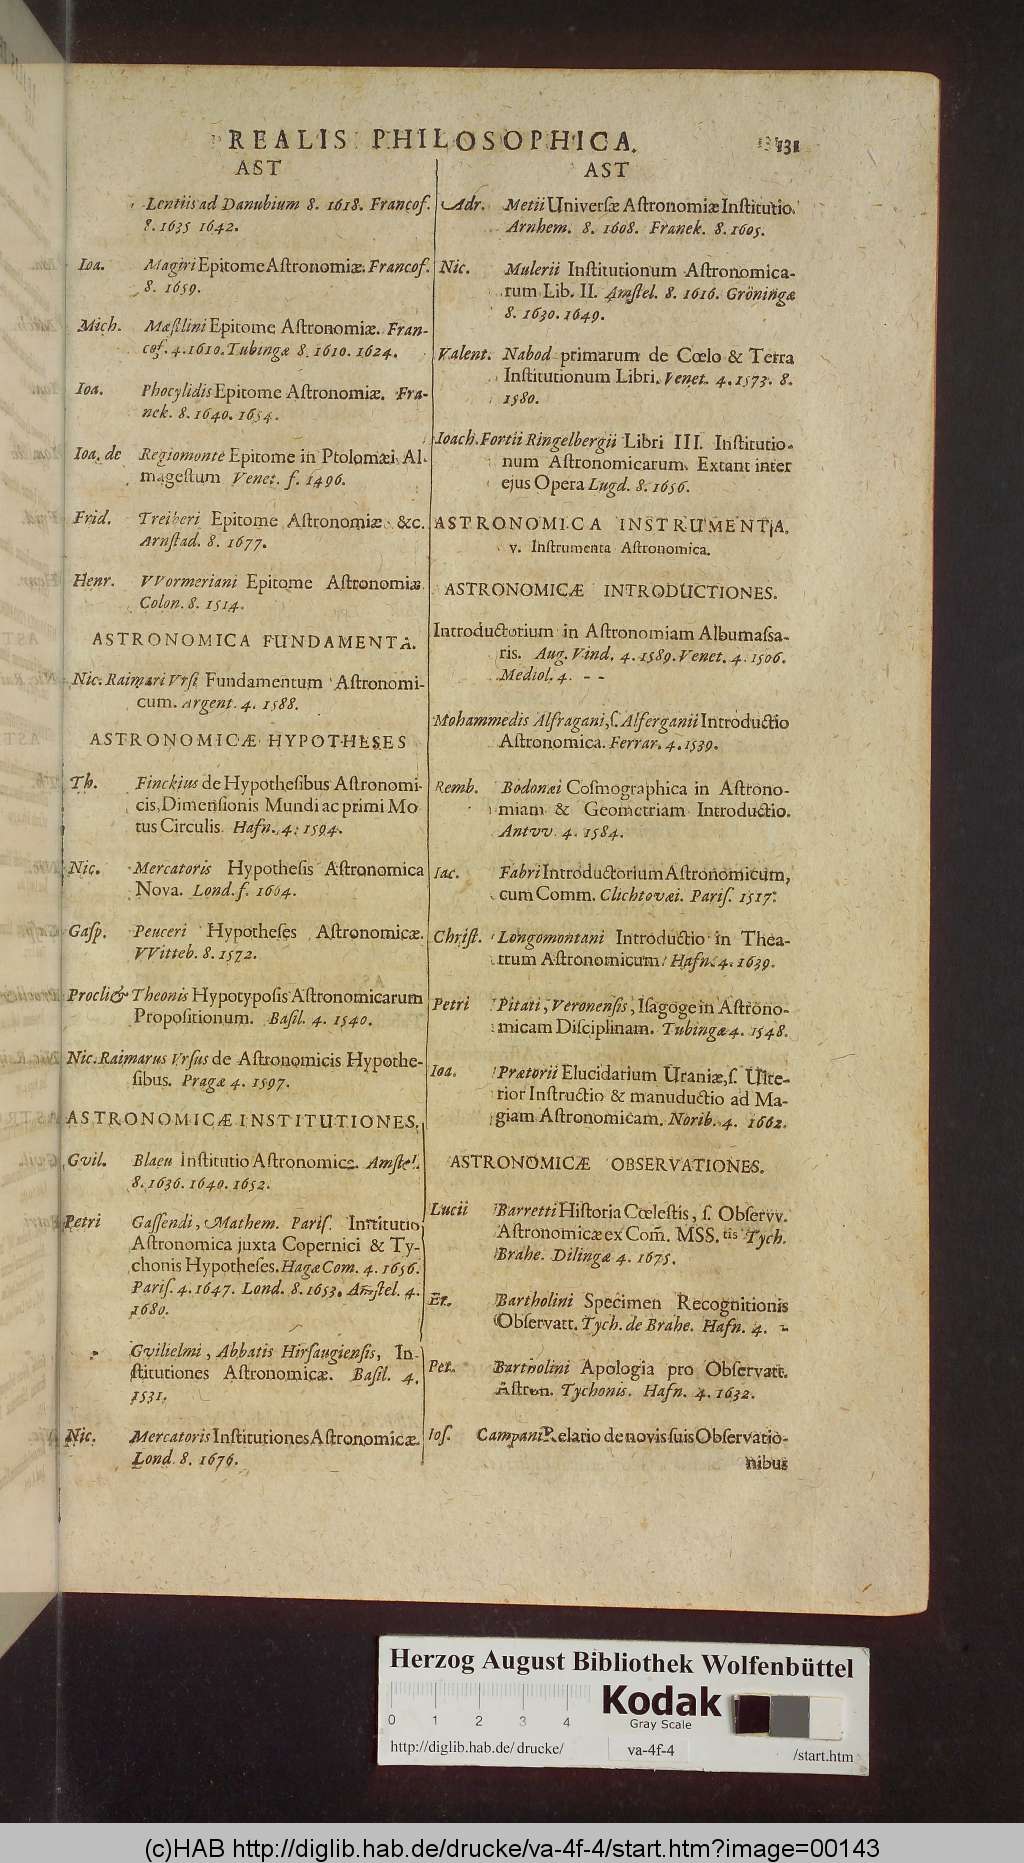 REALIS PHILOSOPHICA. 131
AST
Lentiis ad Danubium 8. 1618. Francof.
8. 1635 1642.
Ioa. Magiri Epitome Astronomiæ. Francof.
8. 1659.
Mich. Mæstlini Epitome Astronomiæ. Fran-
cof. 4. 1610. Tubingæ 8. 1610. 1624.
Ioa. Phocylidis Epitome Astronomiæ. Fra-
nek. 8. 1640. 1654.
Ioa. de Regiomonte Epitome in Ptolomæi Al-
magestum Venet. f. 1496.
Frid. Treiberi Epitome Astronomiæ &c.
Arnstad. 8. 1677.
Henr. VVormeriani Epitome Astronomiæ
Colon. 8. 1514.
ASTRONOMICA FUNDAMENTA.
Nic. Raimari Ursi Fundamentum Astronomi-
cum. Argent. 4. 1588.
ASTRONOMICÆ HYPOTHESES
Th. Finckius de Hypothesibus Astronomi-
cis, Dimensionis Mundi ac primi Mo
tus Circulis. Hafn. 4. 1594.
Nic. Mercatoris Hypothesis Astronomica
Nova. Lond. f. 1664.
Gasp. Peuceri Hypotheses Astronomicæ.
VVitteb. 8. 1572.
Procli & Theonis Hypotyposis Astronomicarum
Propositionum. Basil. 4. 1540.
Nic. Raimarus Ursus de Astronomicis Hypothe-
sibus. Pragæ 4. 1597.
ASTRONOMICÆ INSTITUTIONES.
Gvil. Blaeu Institutio Astronomica. Amstel.
8. 1636. 1640. 1652.
Petri Gassendi, Mathem. Paris. Institutio
Astronomica juxta Copernici & Ty-
chonis Hypotheses. Hagæ Com. 4. 1656.
Paris. 4. 1647. Lond. 8. 1653. Amstel. 4.
1680.
Gvilielmi, Abbatis Hirsaugiensis, In-
stitutiones Astronomicæ. Basil. 4.
1531.
Nic. Mercatoris Institutiones Astronomicæ.
Lond. 8. 1676.
AST
Adr. Metii Universæ Astronomiæ Institutio.
Arnhem. 8. 1608. Franek. 8. 1605.
Nic. Mulerii Institutionum Astronomica-
rum Lib. II. Amstel. 8. 1616. Gröningæ
8. 1630. 1649.
Valent. Nabod primarum de Cœlo & Terra
Institutionum Libri. Venet. 4. 1573. 8.
1580.
Ioach. Fortii Ringelbergii Libri III. Institutio-
num Astronomicarum. Extant inter
ejus Opera Lugd. 8. 1656.
ASTRONOMICA INSTRUMENTA.
v. Instrumenta Astronomica.
ASTRONOMICÆ INTRODUCTIONES.
Introductorium in Astronomiam Albumassa-
ris. Aug. Vind. 4. 1589. Venet. 4. 1506.
Mediol. 4. - -
Mohammedis Alfragani, s. Alferganii Introductio
Astronomica. Ferrar. 4. 1539.
Remb. Bodonæi Cosmographica in Astrono-
miam & Geometriam Introductio.
Antvv. 4. 1584.
Iac. Fabri Introductorium Astronomicum,
cum Comm. Clichtovæi. Paris. 1517.
Christ. Longomontani Introductio in Thea-
trum Astronomicum. Hafn. 4. 1639.
Petri Pitati, Veronensis, Isagoge in Astrono-
micam Disciplinam. Tubingæ 4. 1548.
Ioa. Prætorii Elucidarium Uraniæ, s. Ulte-
rior Instructio & manuductio ad Ma-
giam Astronomicam. Norib. 4. 1662.
ASTRONOMICÆ OBSERVATIONES.
Lucii Barretti Historia Cœlestis, s. Observv.
Astronomicæ ex Com̃. MSS. tis Tych.
Brahe. Dilingæ 4. 1675.
Er. Bartholini Specimen Recognitionis
Observatt. Tych. de Brahe. Hafn. 4. -
Pet. Bartholini Apologia pro Observatt.
Astron. Tychonis. Hafn. 4. 1632.
Ios. Campani Relatio de novis suis Observatio-
nibus
Herzog August Bibliothek Wolfenbüttel
0 1 2 3 4
Kodak
Gray Scale
http://diglib.hab.de/drucke/ va-4f-4 /start.htm
(c)HAB http://diglib.hab.de/drucke/va-4f-4/start.htm?image=00143